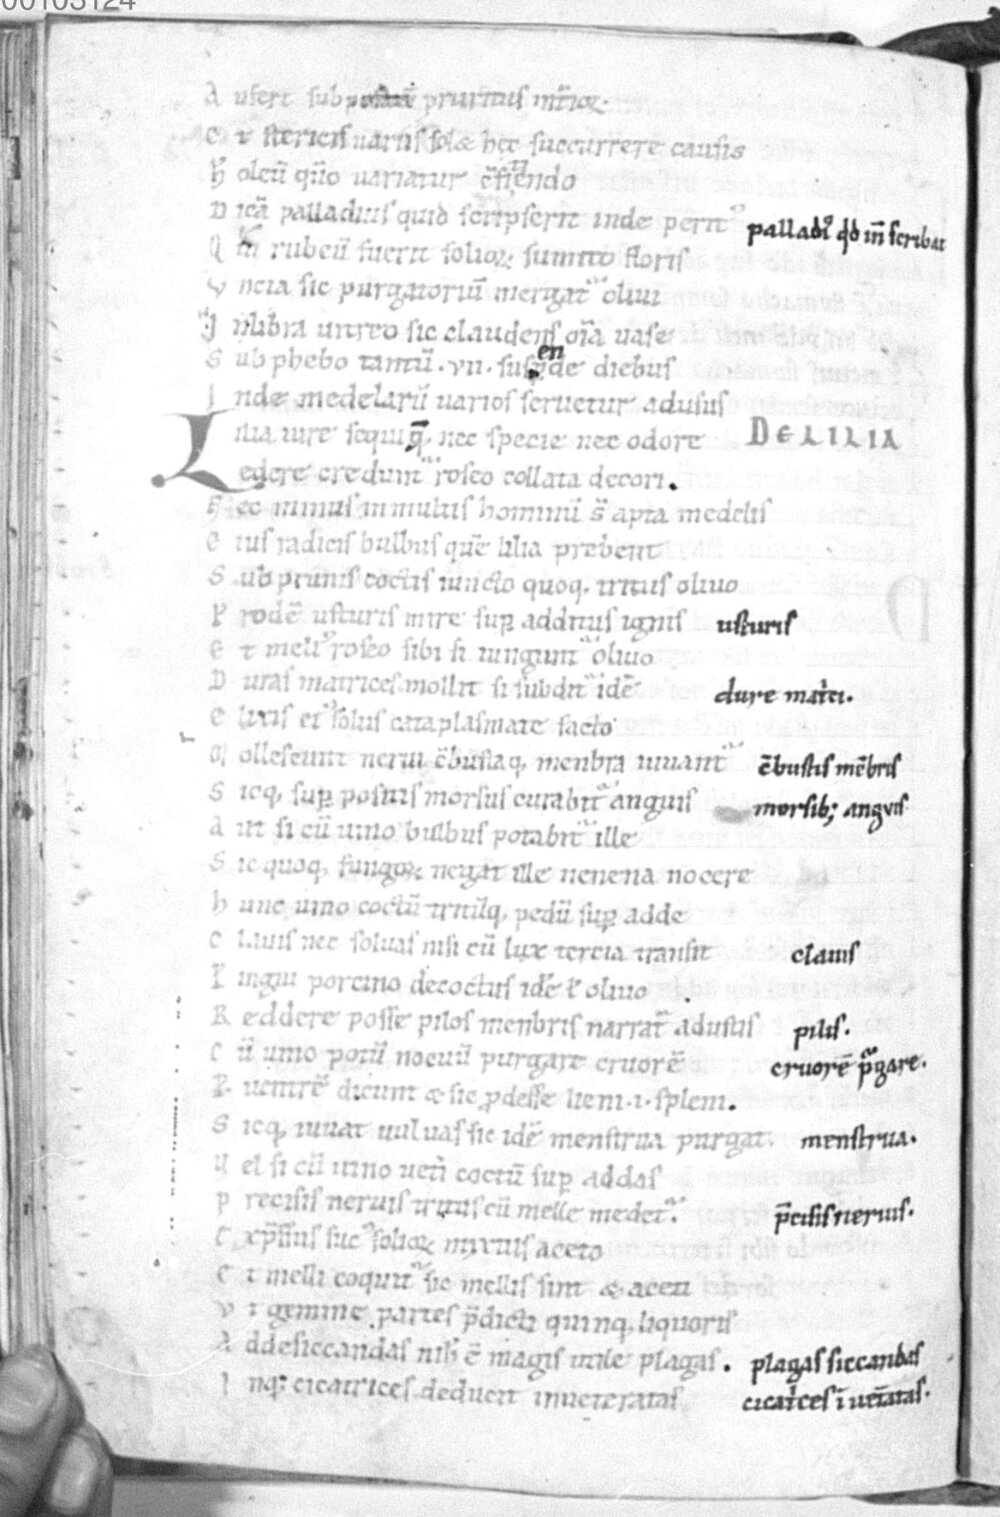 00103124
A ufert sub pruritus mr̄icꝝ
E t stericis uariis solet hec succurrere causis
H oleū quō uariatur cōficiendo
D icā palladius quid scripserit inde perit9 palladi9 qd̄ in scribat
Q in rubeū fuerit folioꝝ summo floris
V ncia sic purgatoriū mergat oliui
I nlibra uitreo sic claudens ora uase
S ub phebo tantū .vii. suspende diebus
I nde medelarū uarios seruetur adusus
L ilia iure sequi q̄ nec specie nec odore DE LILIA
L edere credunt roseo collata decori.
H ec minus in multis hominū s apta medelis
E ius radicis bulbus quē lilia prebent
S ub prunis coctis iuncto quoq; tritus oliuo
P rodē usturis mire sup additus ignis usturis
E t meli9 roseo sibi si iungunt oliuo
D uras matrices mollit si subdit idē dure matci.
E lixis et solus cataplasmate facto
M ollescunt nerui cōbustaq; menbra iuuant cōbustis mēbris
S icq; sup positus morsus curabit anguis morsib; anguis
A ut si cū uino bulbus potabit ille
S ic quoq; fungoꝝ negat ille uenena nocere
H unc uino coctū tritūq; pedū sup adde
C lauis nec soluas nisi cū lux tercia transit clauis
P ingui porcino decoctus idē ł oliuo
R eddere posse pilos menbris narrat adustis pilis.
C ū uino potū nocuū purgare cruorē cruorē pgare.
P uentrē dicunt & sic pdesse lieni .i. splem.
S icq; iuuat uuluas sic idē menstrua purgat menstrua.
V el si cū uino ueti coctū sup addas
P recisis neruis tritus cū melle medet. p̄cisis neruis.
E xp̄ssus suc9 folioꝝ mixtus aceto
E t melli coquit sic mellis sint & aceti
V t gemine partes p̄dicti quinq; liquoris
A ddesiccandas nih̄ ē magis utile plagas. plagas siccandas
I nq; cicatrices deducit inueteratas cicatces ī uetatas.